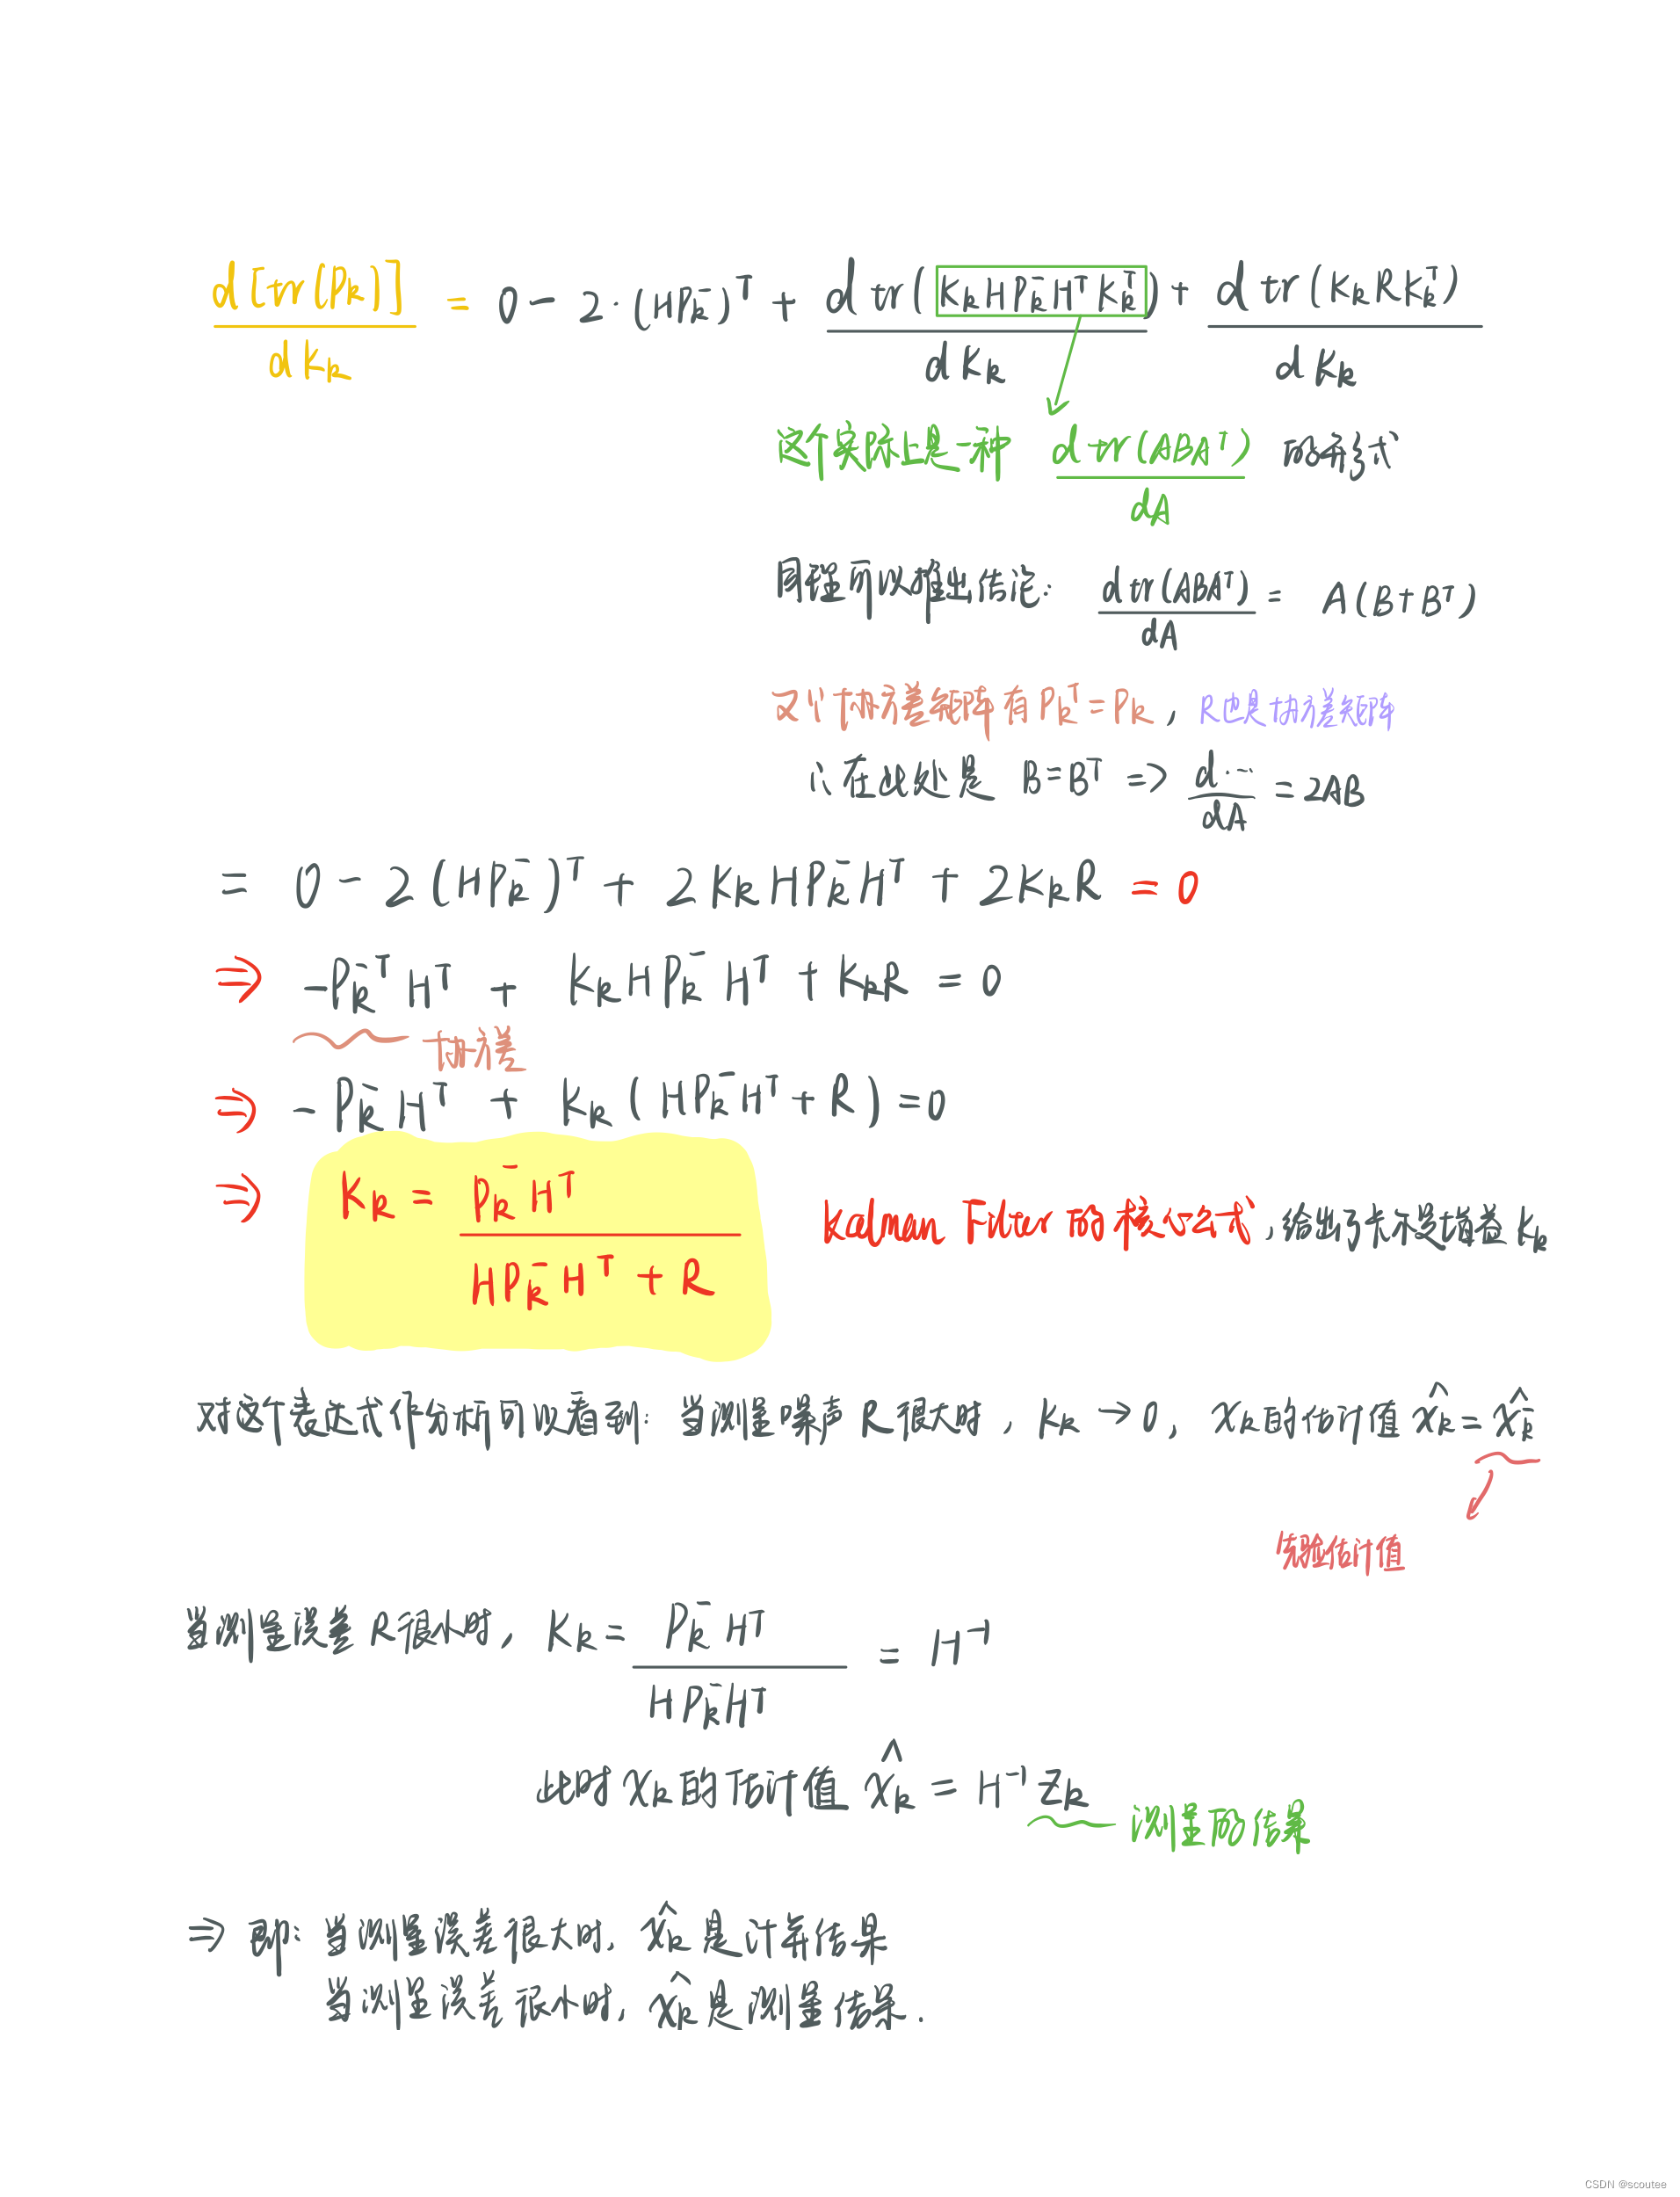 d[tr(Pₖ)]/dKₖ = 0 - 2·(HPₖ⁻)ᵀ + d tr(KₖHPₖ⁻HᵀKₖᵀ)/dKₖ + d tr(KₖRKₖᵀ)/dKₖ
这个实际上是一种 d tr(ABAᵀ)/dA 的形式
同理可以推出结论: d tr(ABAᵀ)/dA = A(B+Bᵀ)
又∵协方差矩阵有Pₖᵀ=Pₖ, R也是协方差矩阵
∴在此处是 B=Bᵀ => d.../dA = 2AB
= 0 - 2(HPₖ⁻)ᵀ + 2KₖHPₖ⁻Hᵀ + 2KₖR = 0
⇒ -Pₖ⁻ᵀHᵀ + KₖHPₖ⁻Hᵀ + KₖR = 0
协方差
⇒ -Pₖ⁻Hᵀ + Kₖ(HPₖ⁻Hᵀ+R) = 0
⇒ Kₖ = Pₖ⁻Hᵀ/(HPₖ⁻Hᵀ+R) Kalman Filter的核心公式,给出了卡尔曼增益Kₖ
对这个表达式作分析可以看到: 当测量噪声R很大时, Kₖ→0, xₖ的估计值 x̂ₖ=x̂ₖ⁻
先验估计值
当测量误差R很小时, Kₖ = Pₖ⁻Hᵀ/(HPₖ⁻Hᵀ) = H⁻¹
此时xₖ的估计值 x̂ₖ = H⁻¹zₖ
测量的结果
⇒ 即: 当测量误差很大时, x̂ₖ是计算结果
当测量误差很小时, x̂ₖ是测量结果.
CSDN @scoutee